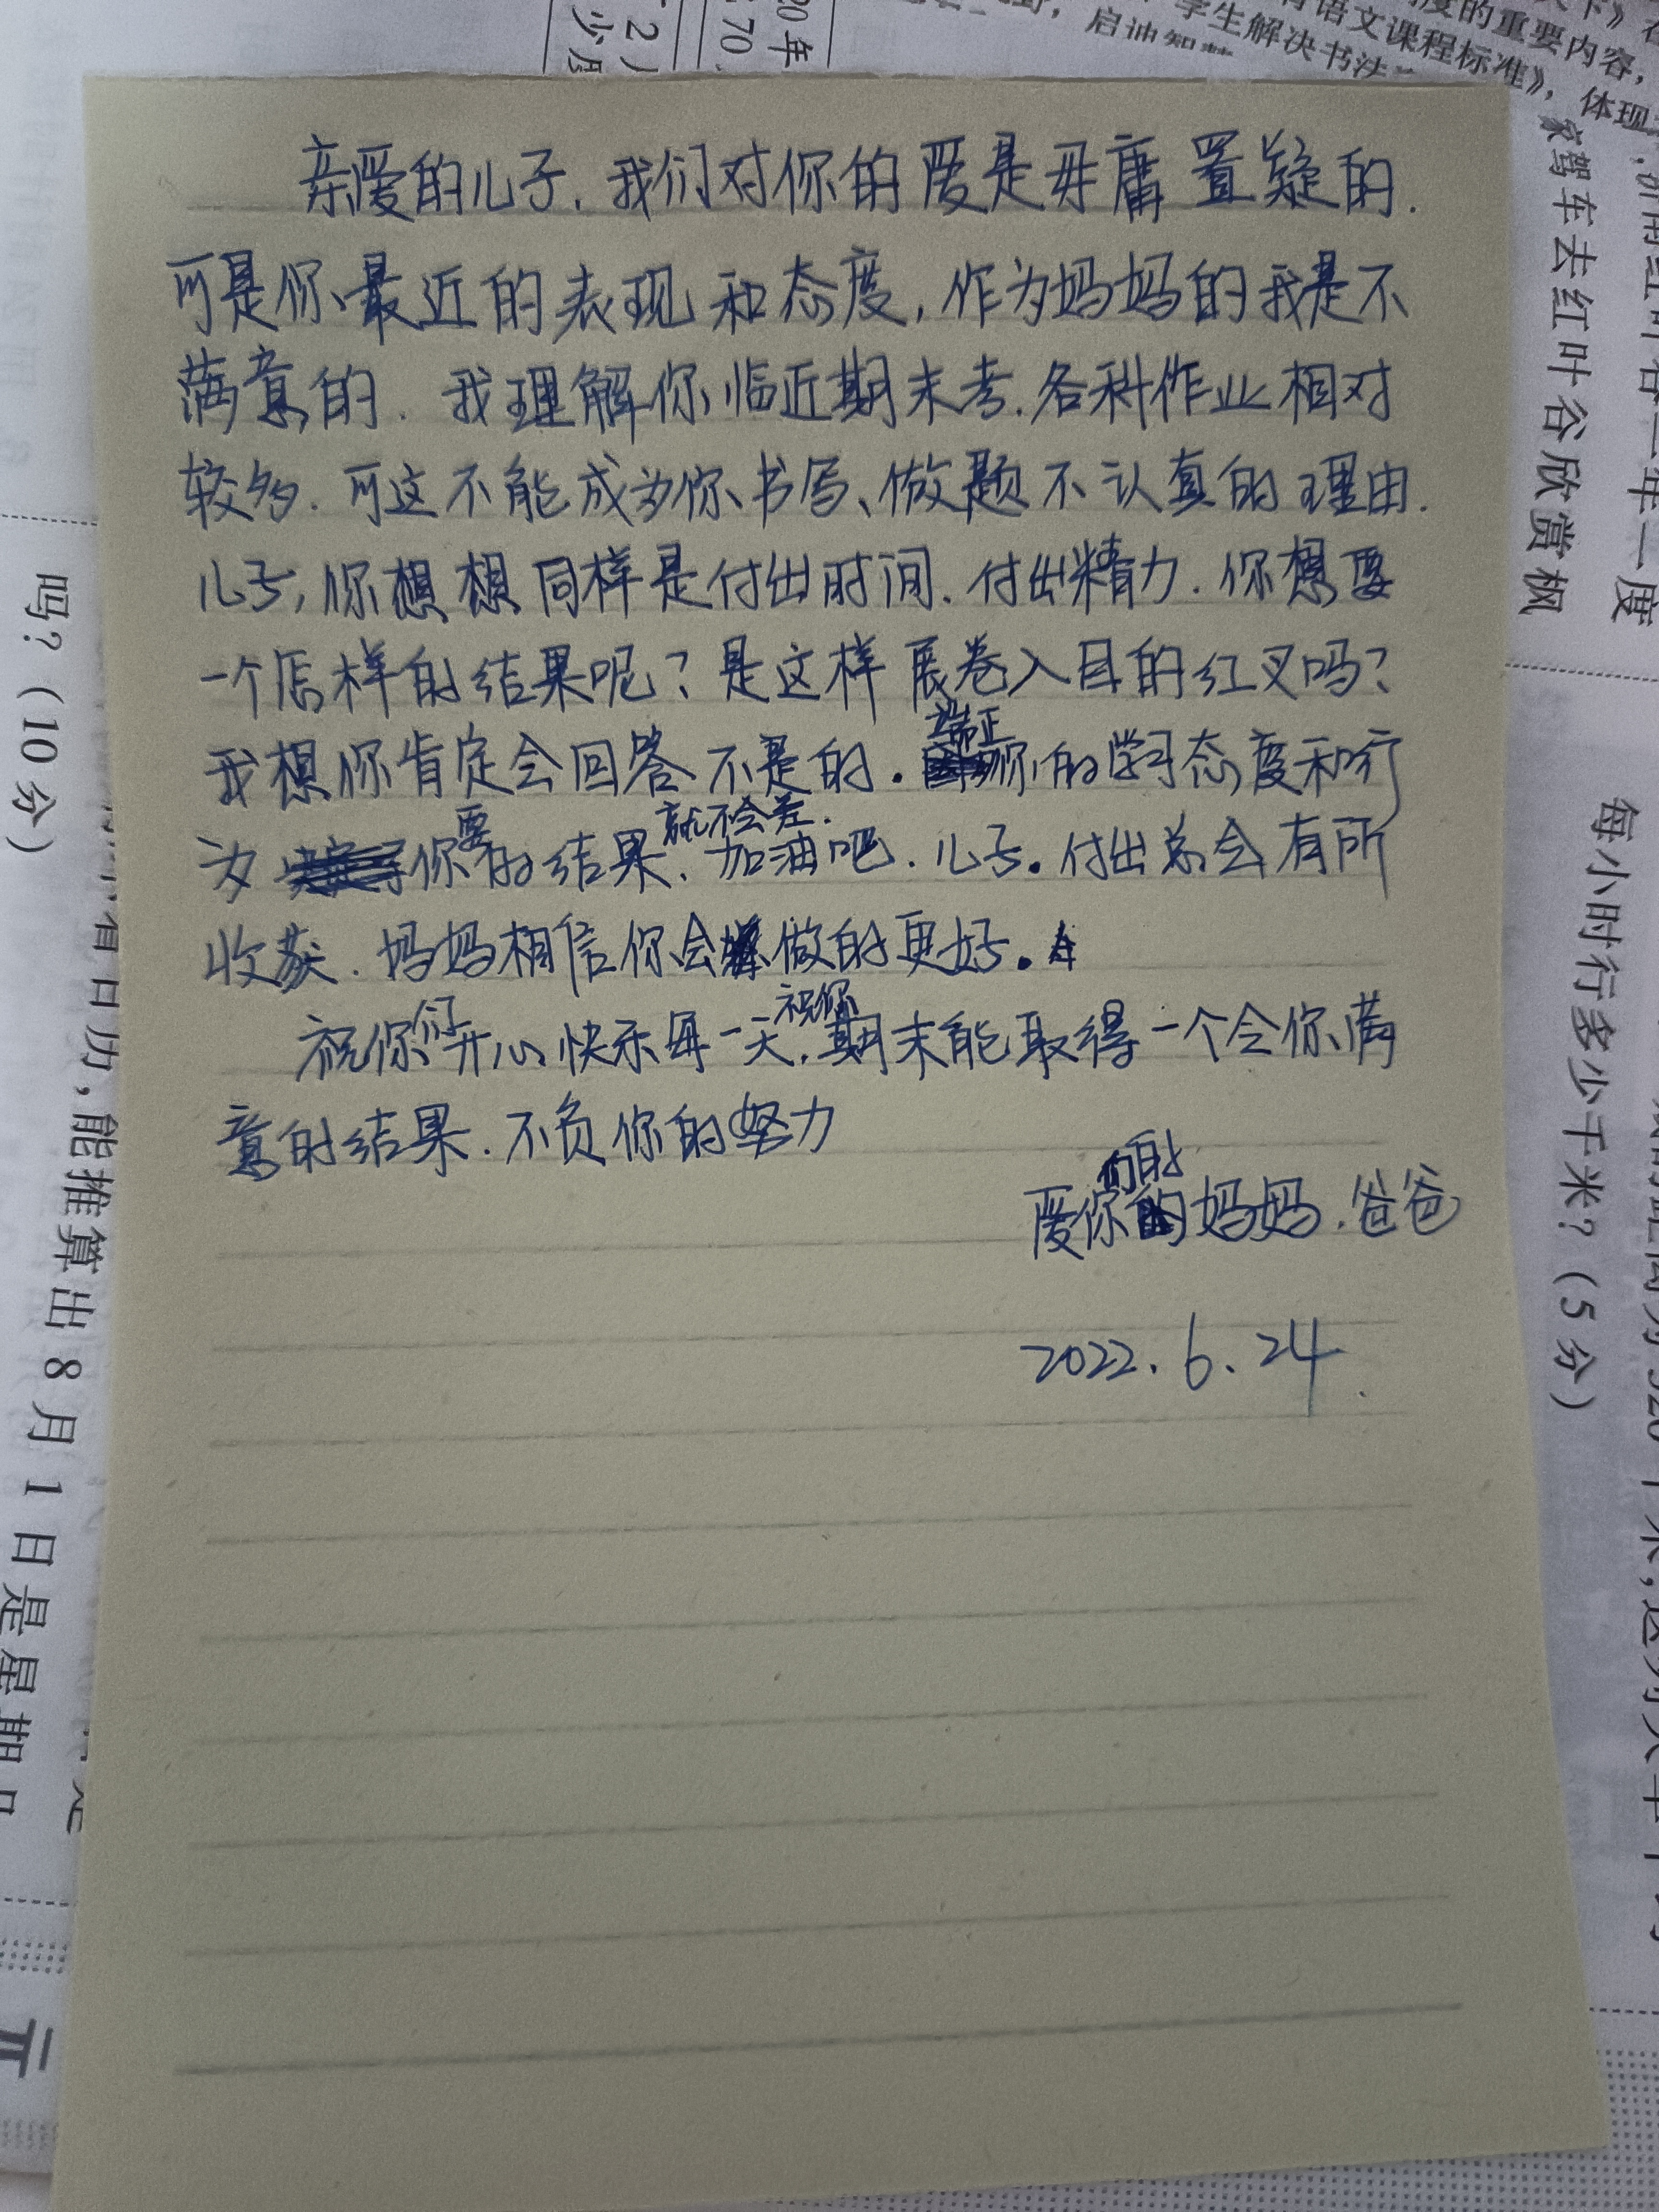 亲爱的儿子.我们对你的爱是毋庸置疑的.
可是你最近的表现和态度,作为妈妈的我是不
满意的.我理解你临近期末考.各科作业相对
较多.可这不能成为你书写、做题不认真的理由.
儿子,你想想同样是付出时间.付出精力.你想要
一个怎样的结果呢?是这样展卷入目的红叉吗?
我想你肯定会回答不是的.端正你的学习态度和行
为你要的结果就不会差.加油吧.儿子.付出总会有所
收获.妈妈相信你会做的更好.
祝你们开心快乐每一天.祝你期末能取得一个令你满
意的结果.不负你的努力
爱你们的妈妈.爸爸
2022.6.24.
家驾车去红叶谷欣赏枫
每小时行多少千米?(5分)
吗?(10分)
能推算出8月1日是星期几
学生解决书法
语文课程标准》,体现
度的重要内容,